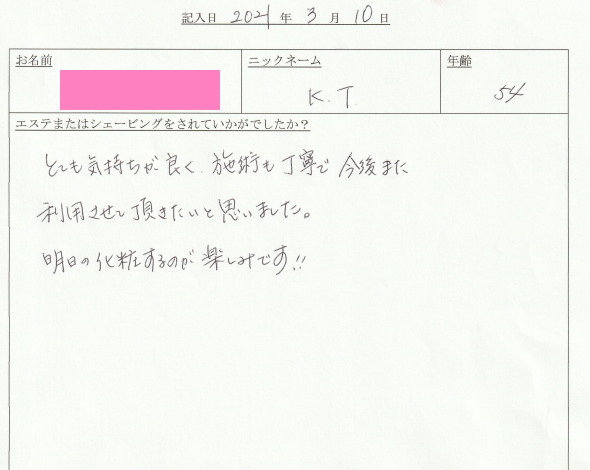 記入日 2021 年 3 月 10 日
お名前 ニックネーム 年齢
K.T. 54
エステまたはシェービングをされていかがでしたか?
とても気持ちが良く、施術も丁寧で今後また
利用させて頂きたいと思いました。
明日の化粧するのが楽しみです!!